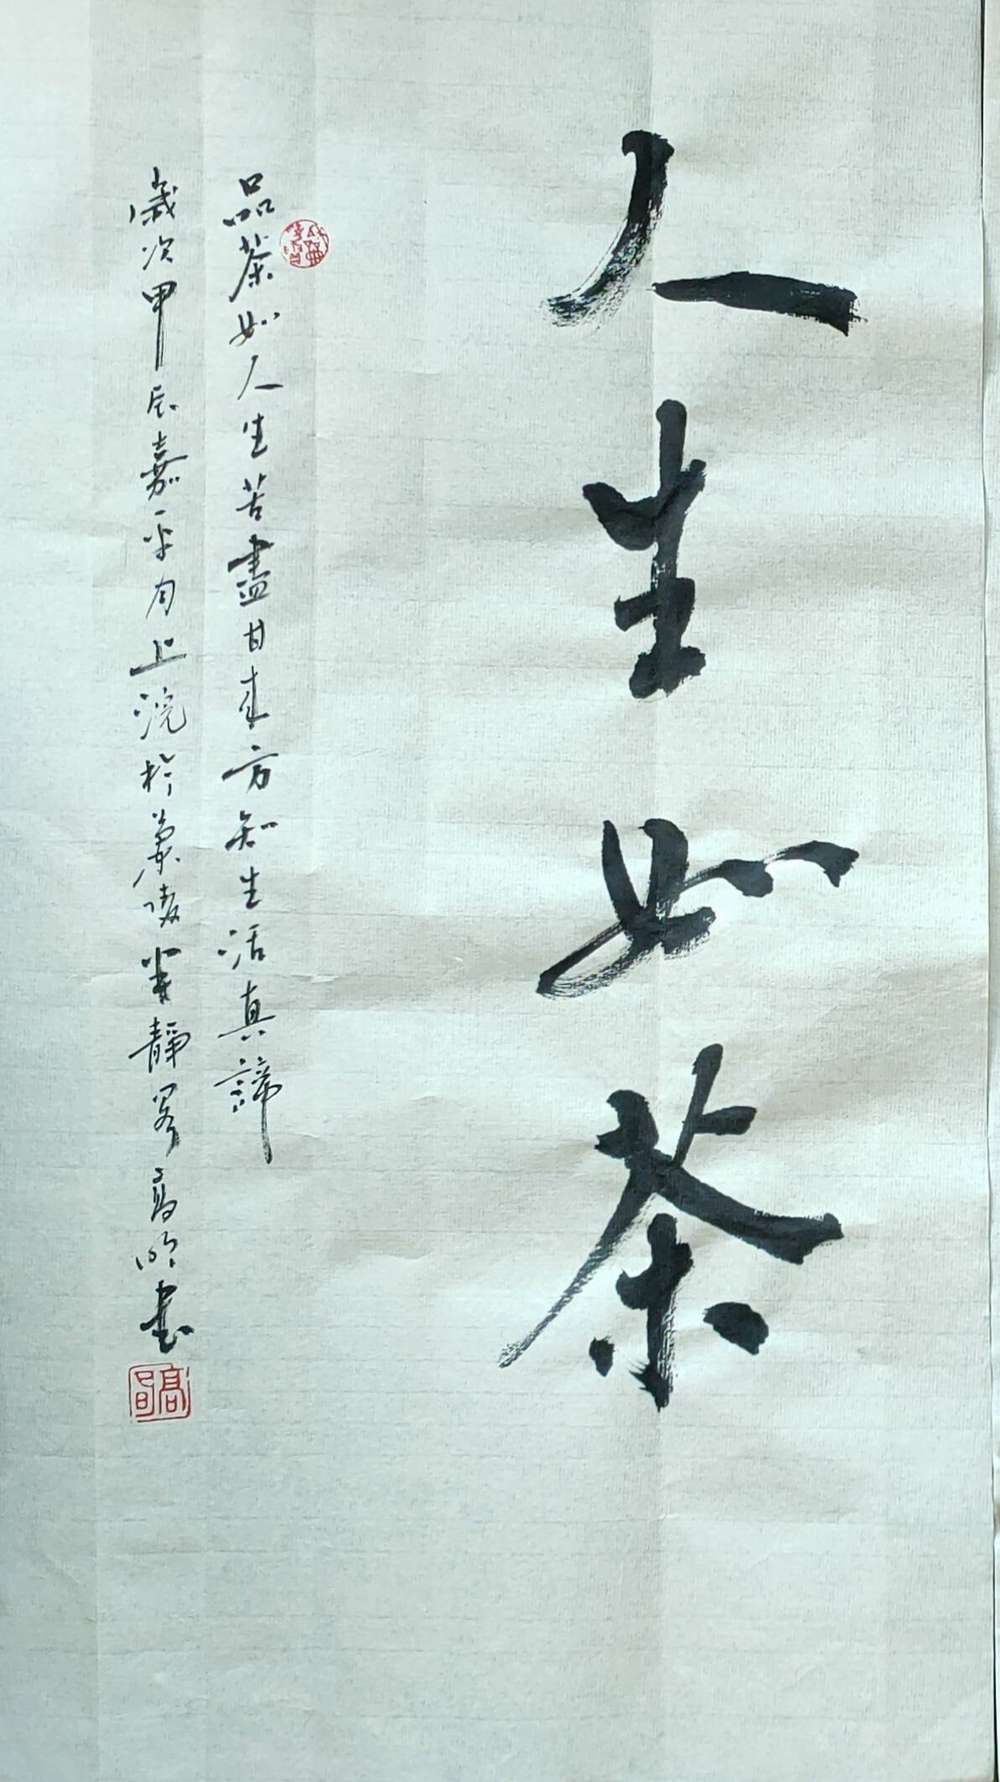 人生如茶
品茶如人生苦盡甘來方知生活真諦
歲次甲辰嘉平月上浣於蘭陵半靜畧高明書
高